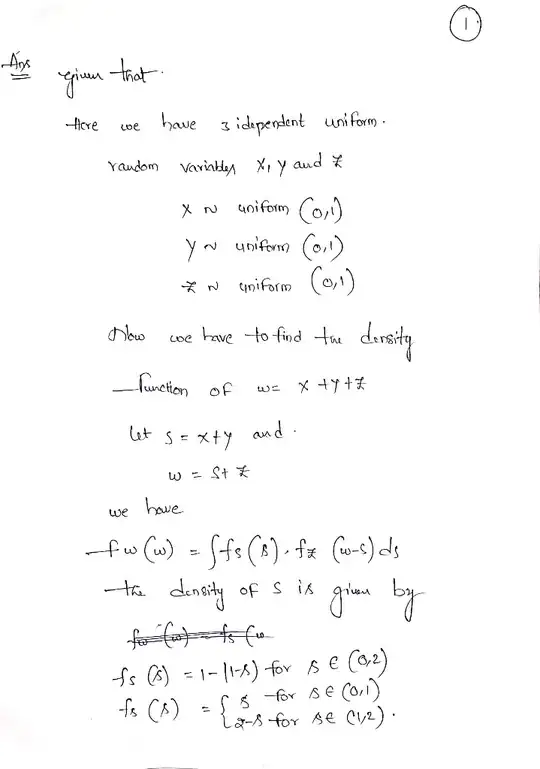 1
Ans given that.
Here we have 3 idependent uniform.
random variables X, Y and Z
X ~ uniform (0,1)
Y ~ uniform (0,1)
Z ~ uniform (0,1)
Now we have to find the density
function of w = X + Y + Z
let S = X+Y and.
w = S + Z
we have
fw(w) = ∫fs(s). fz (w-s) ds
the density of S is given by
fw(w) = fs(w
fs (s) = 1-|1-s) for s ∈ (0,2)
fs (s) = { s for s ∈ (0,1)
2-s for s ∈ (1,2).